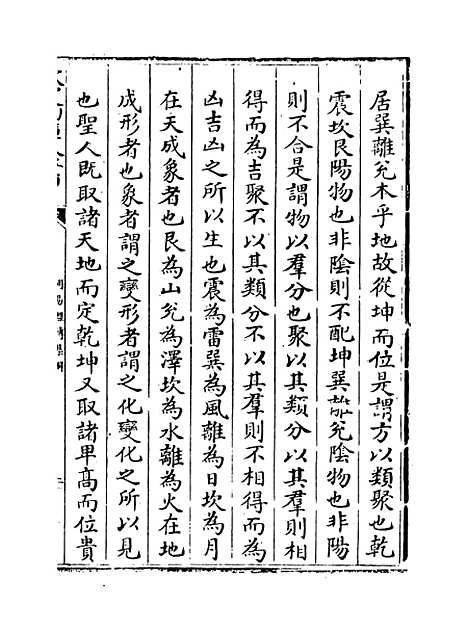 居巽離兊本乎地故從坤而位是謂方以類聚也乾
震坎艮陽物也非陰則不配坤巽離兊陰物也非陽
則不合是謂物以羣分也聚以其類分以其羣則相
得而為吉聚不以其類分不以其羣則不相得而為
凶吉凶之所以生也震為雷巽為風離為日坎為月
在天成象者也艮為山兊為澤坎為水離為火在地
成形者也象者謂之變形者謂之化變化之所以見
也聖人既取諸天地而定乾坤又取諸卑高而位貴